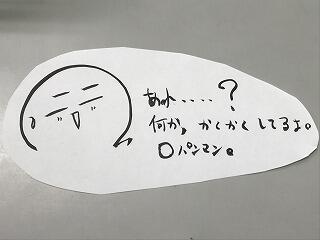 あれ....?
何か,かくかくしてるよ。
〇パンマン。